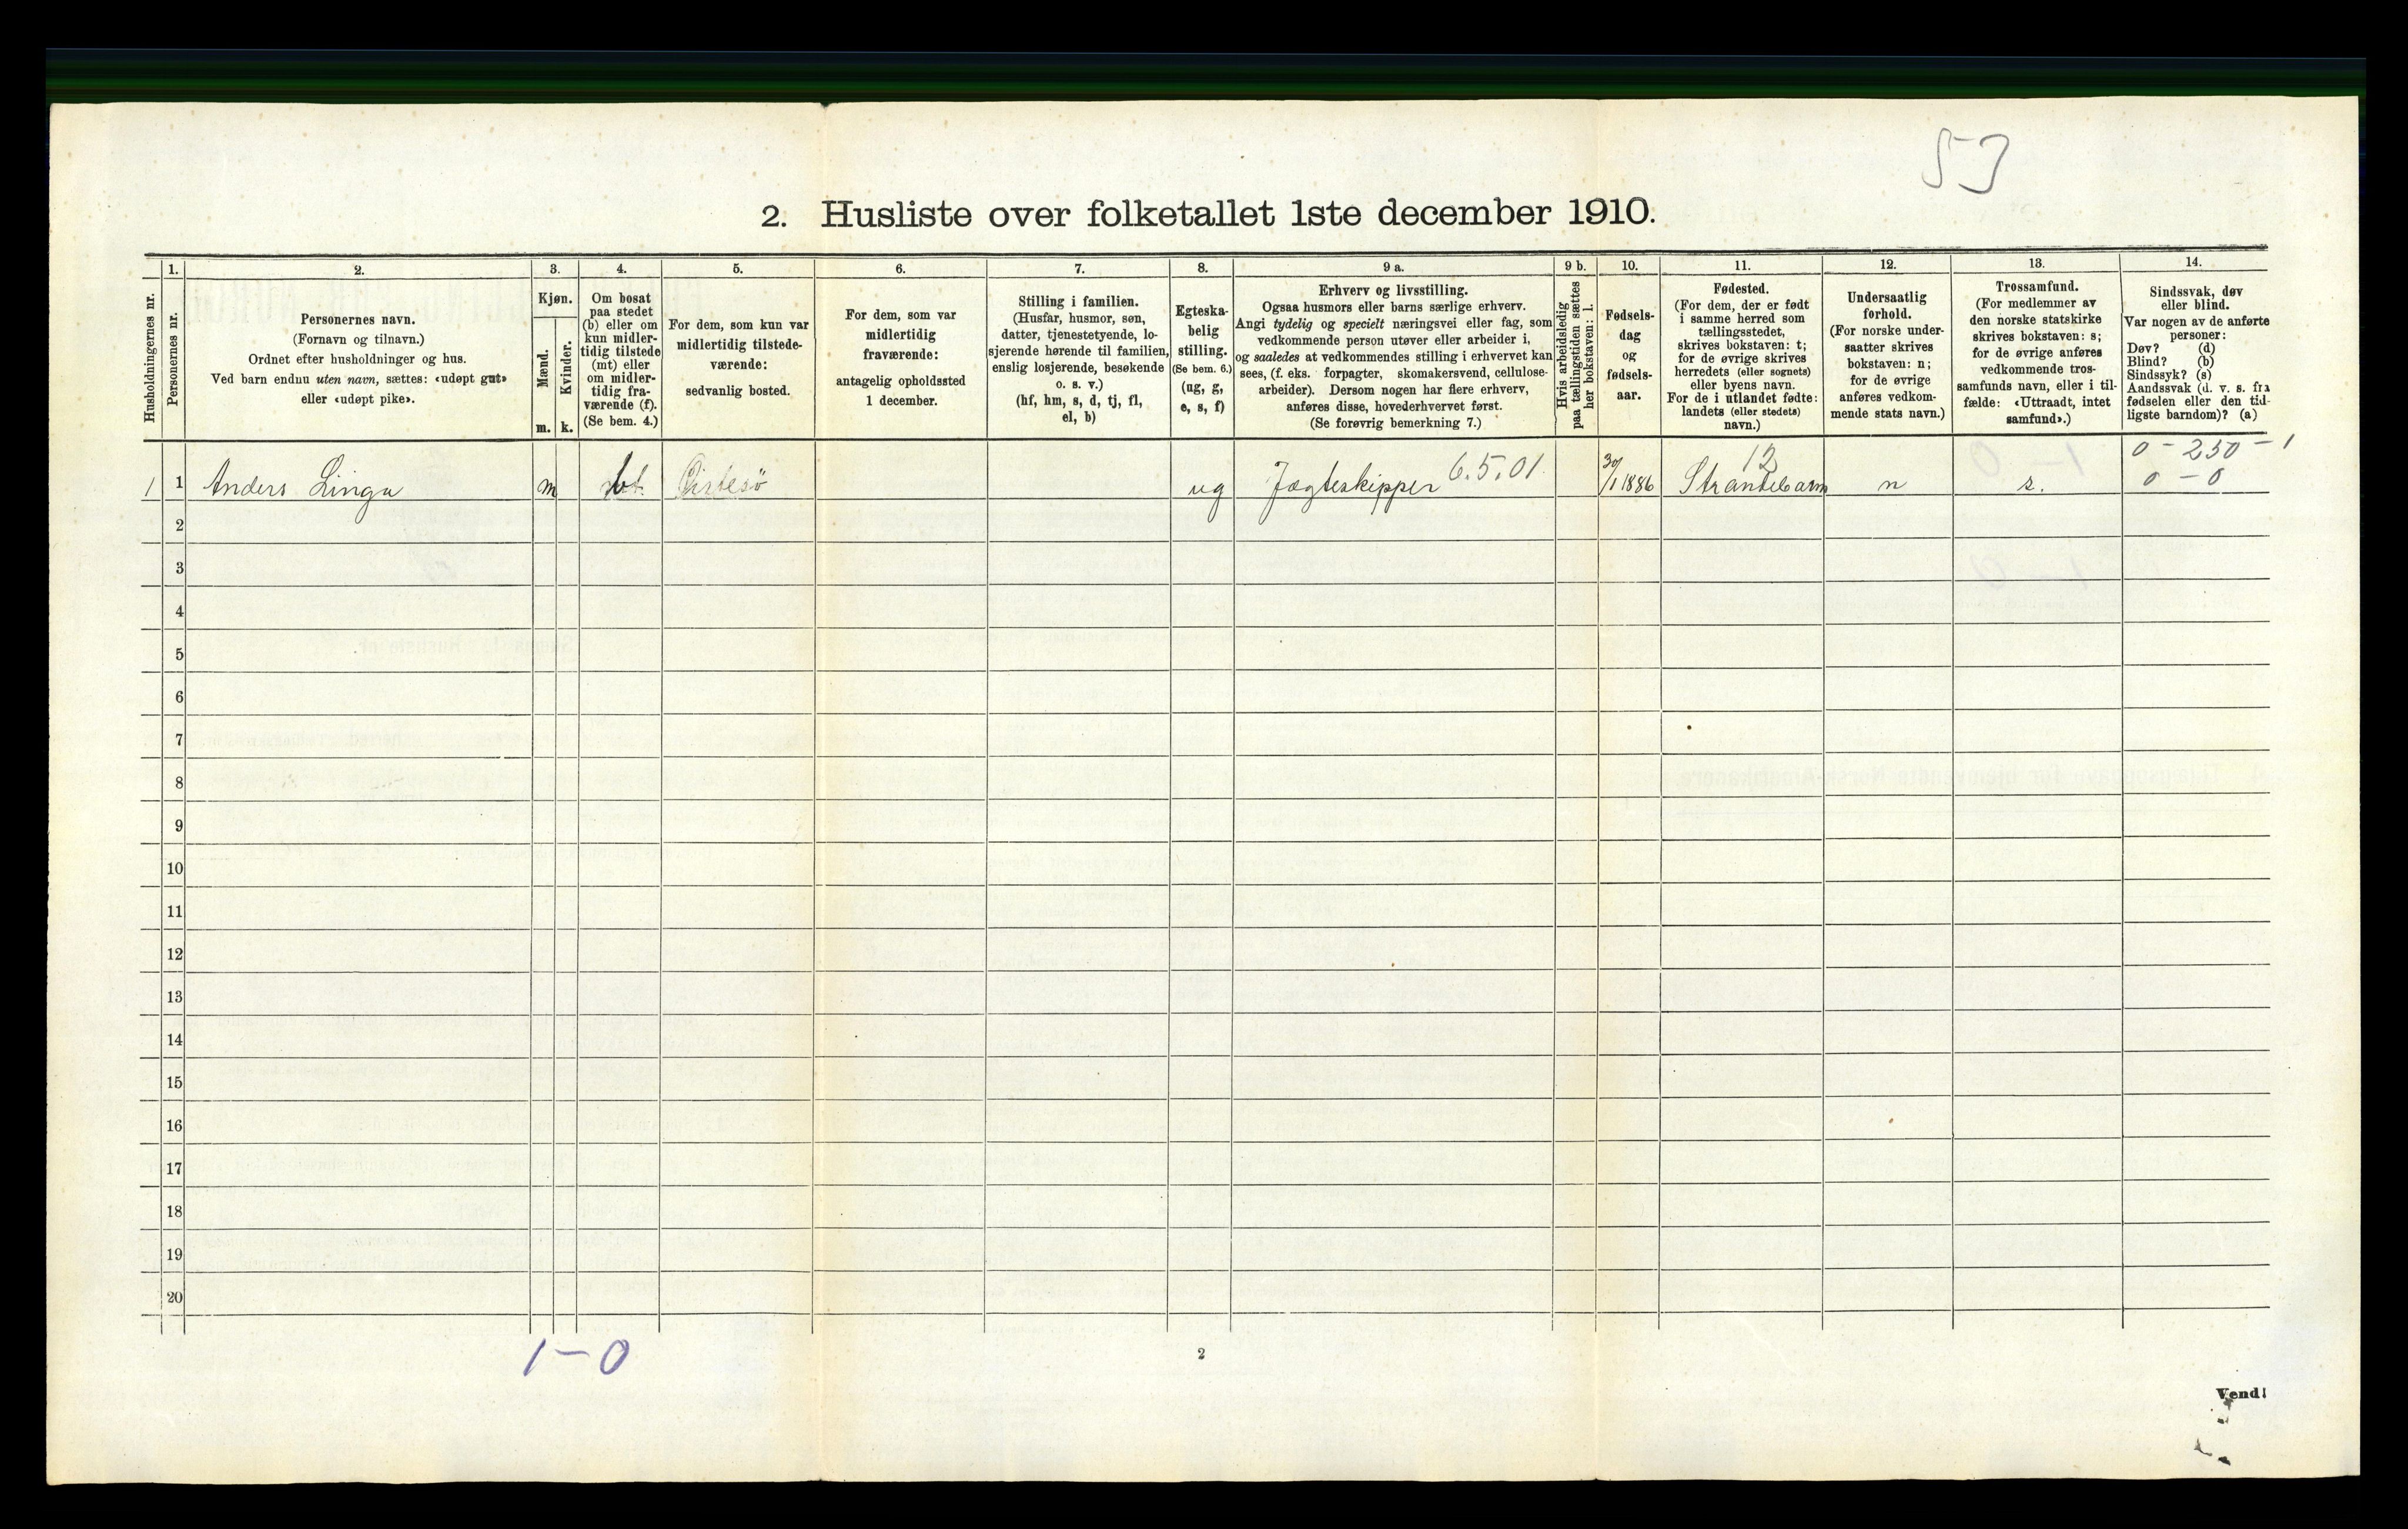 53
2. Husliste over folketallet 1ste december 1910.
Husholdningernes nr.
1.
Personernes nr.
2.
Personernes navn.
(Fornavn og tilnavn.)
Ordnet efter husholdninger og hus.
Ved barn endnu uten navn, sættes: «udøpt gut»
eller «udøpt pike».
3.
Kjøn.
Mænd.
Kvinder.
m. k.
4.
Om bosat
paa stedet
(b) eller om
kun midler-
tidig tilstede
(mt) eller
om midler-
tidig fra-
værende (f).
(Se bem. 4.)
5.
For dem, som kun var
midlertidig tilstede-
værende:
sedvanlig bosted.
6.
For dem, som var
midlertidig
fraværende:
antagelig opholdssted
1 december.
7.
Stilling i familien.
(Husfar, husmor, søn,
datter, tjenestetyende, lo-
sjerende hørende til familien,
enslig losjerende, besøkende
o. s. v.)
(hf, hm, s, d, tj, fl,
el, b)
8.
Egteska-
belig
stilling.
(Se bem. 6.)
(ug, g,
e, s, f)
9 a.
Erhverv og livsstilling.
Ogsaa husmors eller barns særlige erhverv.
Angi tydelig og specielt næringsvei eller fag, som
vedkommende person utøver eller arbeider i,
og saaledes at vedkommendes stilling i erhvervet kan
sees, (f. eks. forpagter, skomakersvend, cellulose-
arbeider). Dersom nogen har flere erhverv,
anføres disse, hovederhvervet først.
(Se forøvrig bemerkning 7.)
9 b.
Hvis arbeidsledig
paa tællingstiden sættes
her bokstaven: l.
10.
Fødsels-
dag
og
fødsels-
aar.
11.
Fødested.
(For dem, der er født
i samme herred som
tællingsstedet,
skrives bokstaven: t;
for de øvrige skrives
herredets (eller sognets)
eller byens navn.
For de i utlandet fødte:
landets (eller stedets)
navn.)
12.
Undersaatlig
forhold.
(For norske under-
saatter skrives
bokstaven: n;
for de øvrige
anføres vedkom-
mende stats navn.)
13.
Trossamfund.
(For medlemmer av
den norske statskirke
skrives bokstaven: s;
for de øvrige anføres
vedkommende tros-
samfunds navn, eller i til-
fælde: «Uttraadt, intet
samfund».)
14.
Sindssvak, døv
eller blind.
Var nogen av de anførte
personer:
Døv? (d)
Blind? (b)
Sindssyk? (s)
Aandssvak (d. v. s. fra
fødselen eller den tid-
ligste barndom)? (a)
6.5.01. 12 0 - 250 - 1
1 1 Anders Linga m ug Jægteskipper 30/1 1886 Strandebarm n s. 0 - 0
2
3
4
5
6
7
8
9
10
11
12
13
14
15
16
17
18
19
20
1 - 0
2
Vend!